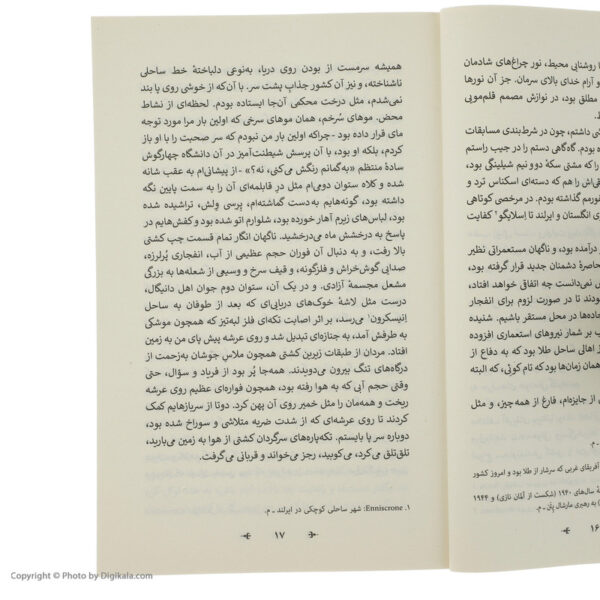 ا روشنایی محیط، نور چراغ‌های شادمان
و آرام خدای بالای سرمان. جز آن نورها
مطلق بود، در نوازش مصمم قلم‌مویی
ط.
شتی داشتم، چون در شرط‌بندی مسابقات
ه بودم. گاه‌گاهی دستم را در جیب راستم
را که مشتی سکهٔ دو و نیم شیلینگی بود،
قی‌اش را هم که دسته‌ای اسکناس ترد و
فورمم گذاشته بودم. در مرخصی کوتاهی
ی انگلستان و ایرلند تا اسلایگو۲ کفایت
درآمده بود، و ناگهان مستعمراتی نظیر
حاصرهٔ دشمنان جدید قرار گرفته بود،
س نمی‌دانست چه اتفاقی خواهد افتاد،
ودند تا در صورت لزوم برای انفجار
اده‌ها در محل مستقر باشیم. شنیده
ب بر شمار نیروهای استعماری افزوده
از اهالی ساحل طلا بود که به دفاع از
همان زمان‌ها بود که تام کوئی، که البته
از جایزه‌ام، فارغ از همه‌چیز، و مثل
ـ م.
آفریقای غربی که سرشار از طلا بود و امروز کشور
هٔ سال‌های ۱۹۴۰ (شکست از آلمان نازی) و ۱۹۴۴
) به رهبری مارشال پتن ـ م.
۱۶
همیشه سرمست از بودن روی دریا، به‌نوعی دلباختهٔ خط ساحلی
ناشناخته، و نیز آن کشور جذاب پشت سر. با آن‌که از خوشی روی پا بند
نمی‌شدم، مثل درخت محکمی آن‌جا ایستاده بودم. لحظه‌ای از نشاط
محض. موهای سُرخم، همان موهای سرخی که اولین بار مرا مورد توجه
مای قرار داده بود - چراکه اولین بار من نبودم که سر صحبت را با او باز
کردم، بلکه او بود، با آن پرسش شیطنت‌آمیز در آن دانشگاه چهارگوش
سادهٔ منتظم «به‌گمانم رنگش می‌کنی، نه؟» - از پیشانی‌ام به عقب شانه
شده و کلاه ستوان دومی‌ام مثل درِ قابلمه‌ای آن را به سمت پایین نگه
داشته بود، گونه‌هایم به‌دست گماشته‌ام، پرسی ولش، تراشیده شده
بود، لباس‌های زیرم آهار خورده بود، شلوارم اتو شده بود و کفش‌هایم در
پاسخ به درخشش ماه می‌درخشید. ناگهان انگار تمام قسمت چپ کشتی
بالا رفت، و به دنبال آن فوران حجم عظیمی از آب، انفجاری پُرلرزه،
صدایی گوش‌خراش و فلزگونه، و قیف سرخ و وسیعی از شعله‌ها به بزرگی
مشعل مجسمهٔ آزادی. و در یک آن، ستوان دوم جوان اهل دانیگال،
درست مثل لاشهٔ خوک‌های دریایی‌ای که بعد از طوفان به ساحل
اِنیسکرون۱ می‌رسد، بر اثر اصابت تکه‌ای فلز لبه‌تیز که همچون موشکی
به طرفش آمد، به جنازه‌ای تبدیل شد و روی عرشه پیش پای من به زمین
افتاد. مردان از طبقات زیرین کشتی همچون ملاسِ جوشان به‌زحمت از
درگاه‌های تنگ بیرون می‌دویدند. همه‌جا پُر بود از فریاد و سؤال، حتی
وقتی حجم آبی که به هوا رفته بود، همچون فواره‌ای عظیم روی عرشه
ریخت و همه‌مان را مثل خمیر روی آن پهن کرد. دوتا از سربازهایم کمک
کردند تا روی عرشه‌ای که از شدت ضربه متلاشی و سوراخ شده بود،
دوباره سر پا بایستم. تکه‌پاره‌های سرگردان کشتی از هوا به زمین می‌بارید،
تلق‌تلق می‌کرد، می‌کوبید، رجز می‌خواند و قربانی می‌گرفت.
۱. Enniscrone: شهر ساحلی کوچکی در ایرلند ـ م.
۱۷
Copyright © Photo by Digikala.com